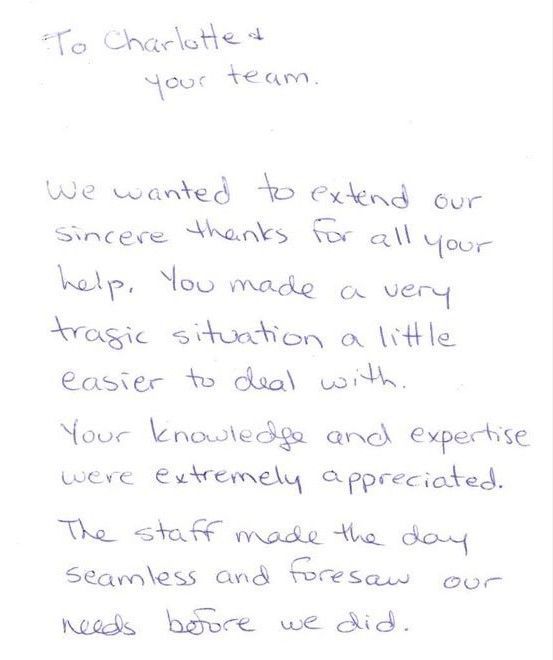 To Charlotte &
your team.
We wanted to extend our
sincere thanks for all your
help. You made a very
tragic situation a little
easier to deal with.
Your knowledge and expertise
were extremely appreciated.
The staff made the day
seamless and foresaw our
needs before we did.